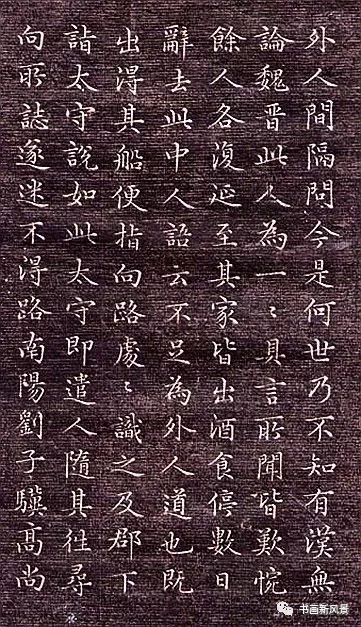 外人間隔問今是何世乃不知有漢無
論魏晉此人為一〻具言所聞皆歎惋
餘人各復延至其家皆出酒食停數日
辭去此中人語云不足為外人道也既
出得其船便指向路處〻識之及郡下
詣太守說如此太守即遣人隨其往尋
向所誌遂迷不得路南陽劉子驥高尚
书画新风景